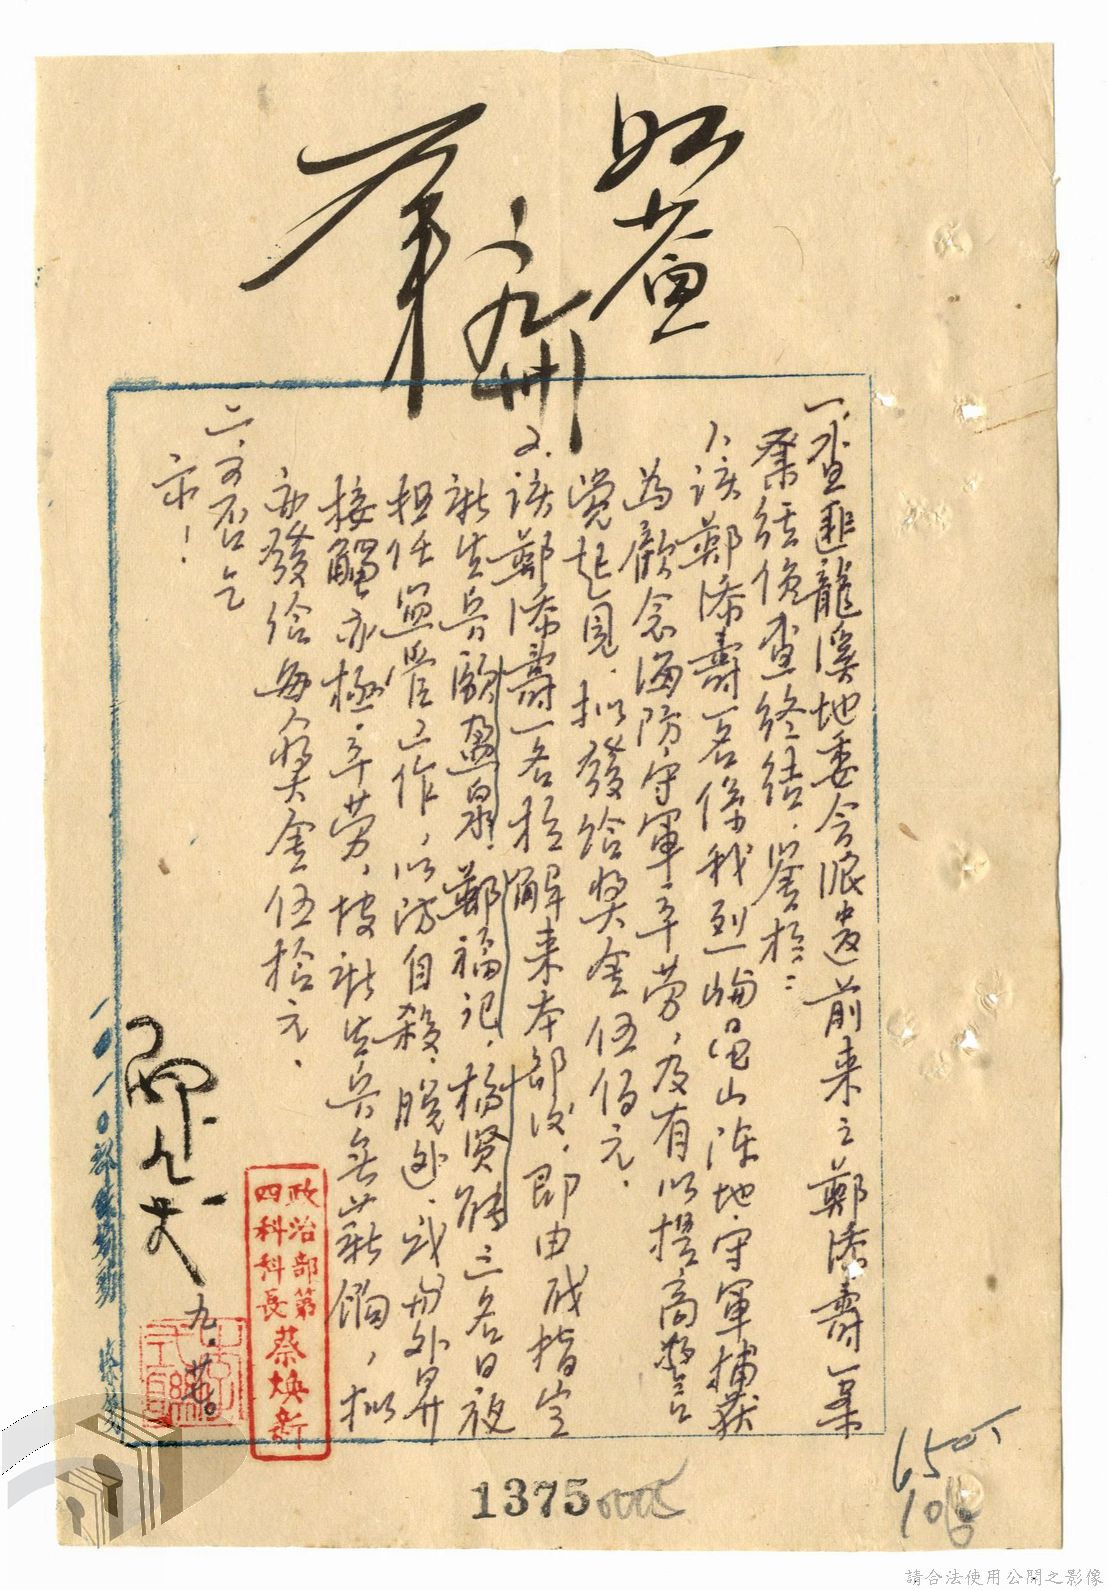 如
一、查匪龍溪地委會派遣前來之鄭添壽一案
業經偵查終結,鑒於:
1、該鄭添壽一名係我烈嶼黃山陣地守軍捕獲
為顧念海防守軍辛勞,及有以提高警
覺起見,擬發給獎金伍佰元。
2、該鄭添壽一名於解來本部後,即由成指定
新生兵顏盈泉、鄭福記、楊賢能三名日夜
担任監管工作,以防自殺、脫逃、或
接觸亦極辛勞,按新生兵無薪餉,擬
亦發給每人獎金伍拾元。
二、可否乞
示!
政治部第
四科科長
蔡煥新
九、
1375
650
請合法使用公開之影像